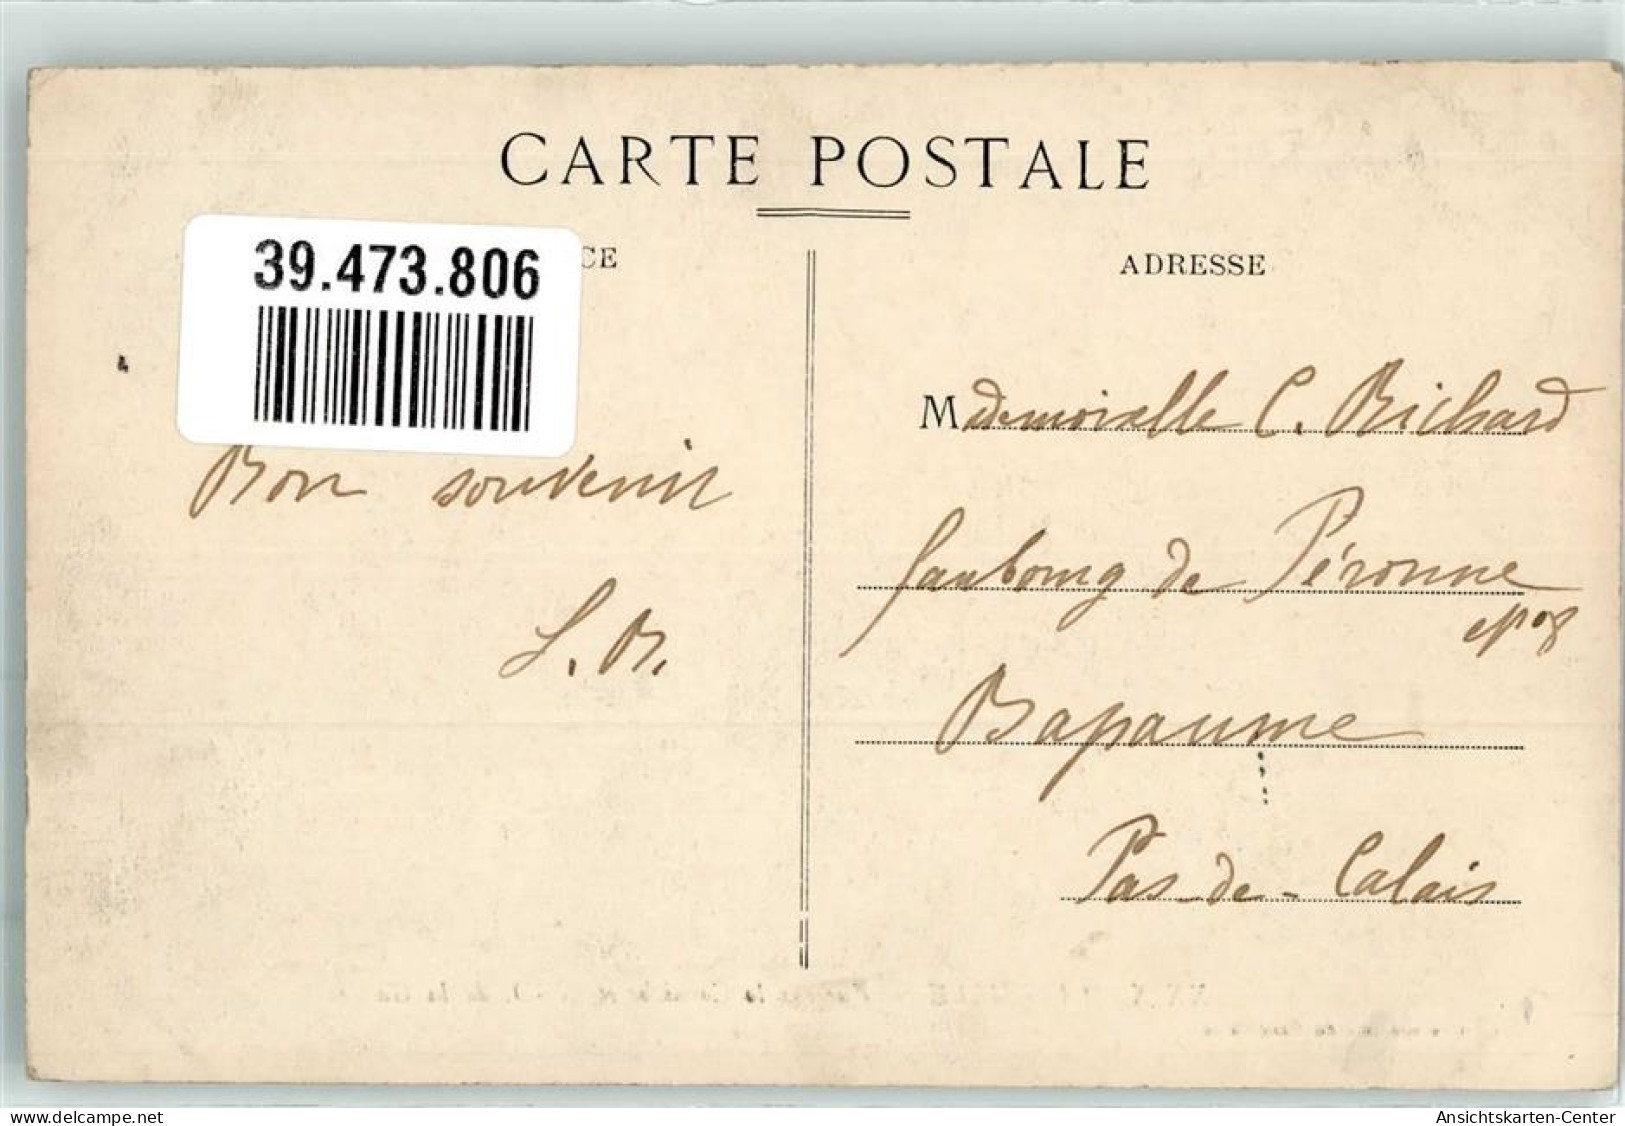 CARTE POSTALE
39.473.806
CE
ADRESSE
Bon souvenir
Mademoiselle C. Richard
faubourg de Péronne
Bapaume
Pas-de-Calais
delcampe.net
Ansichtskarten-Center